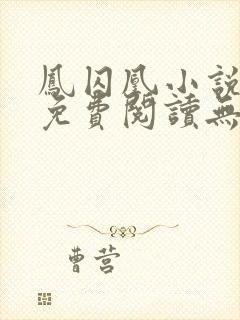 鳳囚凰小說
免費閱讀無
曹营